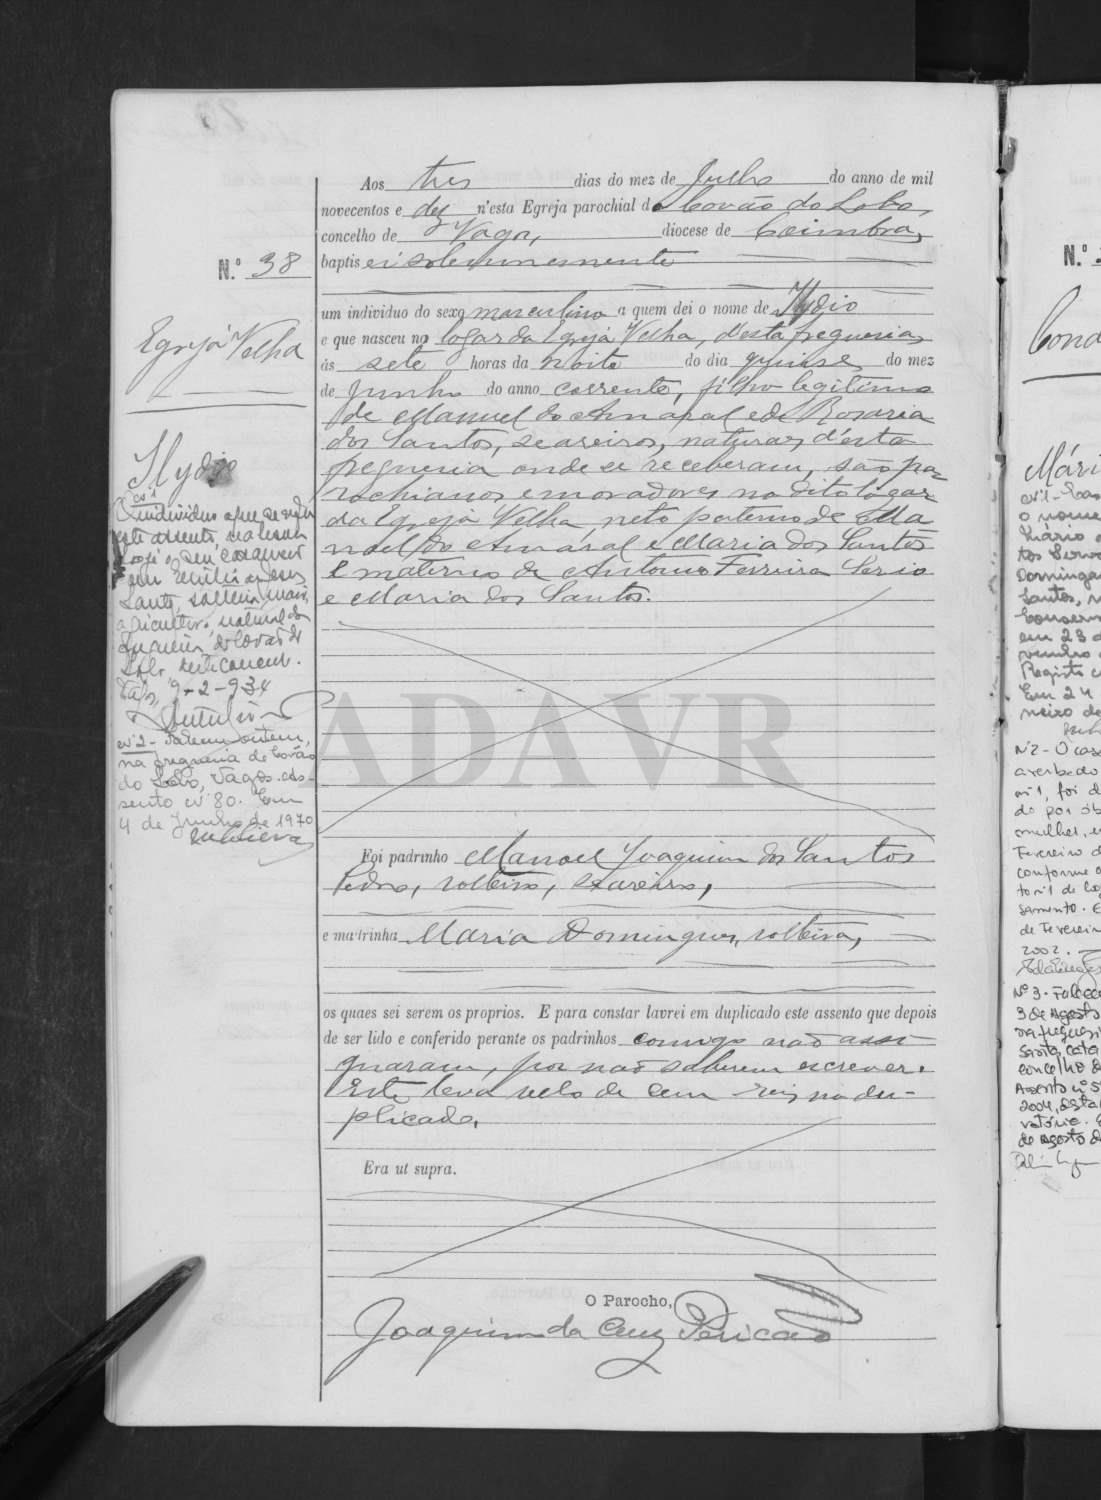 Aos tres dias do mez de Julho do anno de mil
novecentos e dez n'esta Egreja parochial do Covão do Lobo,
concelho de Vagos, diocese de Coimbra,
baptisei solemnemente
N.º 38
um individuo do sexo masculino a quem dei o nome de Ilydio
Egreja Velha
e que nasceu no logar da Egreja Velha, d'esta freguesia,
ás sete horas da noite do dia quinse do mez
de Junho do anno corrente, filho legitimo
de Manuel do Amaral e de Rosaria
dos Santos, seareiros, naturaes d'esta
freguesia onde se receberam, são pa-
rochianos e moradores no dito logar
da Egreja Velha, neto paterno de Ma
noel do Amaral e Maria dos Santos
e materno de Antonio Ferreira Serio
e Maria dos Santos.
Ilydio
nº 1
O individuo a que se refere
este assento, realisou
hoje o seu casamento
com
Santos, solteira, maior,
agricultora, natural da
freguesia do Covão do
Lobo deste concelho.
Vagos, 9-2-934
nº 2 - Faleceu ontem,
na freguesia de Covão
do Lobo, Vagos. As-
sento nº 80. Em
4 de Junho de 1970
ADAVR
Foi padrinho Manoel Joaquim dos Santos
Pedro, solteiro, seareiro,
e madrinha Maria Domingues, solteira,
os quaes sei serem os proprios. E para constar lavrei em duplicado este assento que depois
de ser lido e conferido perante os padrinhos comigo não assi
gnaram, por não saberem escrever.
Este leva sello de cem reis no du-
plicado.
Era ut supra.
O Parocho,
Joaquim da Cruz Pericão
N.º
Cond
Mári
nº 1 - Casou
o nome
Domingas
Santos,
Conserv
em 23 d
Registo
Em 24
neiro de
Nº 2 - O casa
averbado
nº 1, foi d
do por ób
mulher,
Fevereiro d
conforme o
samento. E
de Fevereir
2002.
Nº 3 - Falece
3 de Agosto
na freguesi
Santa Cata
concelho d
Assento nº 5
2004, desta
vatória. E
de Agosto d